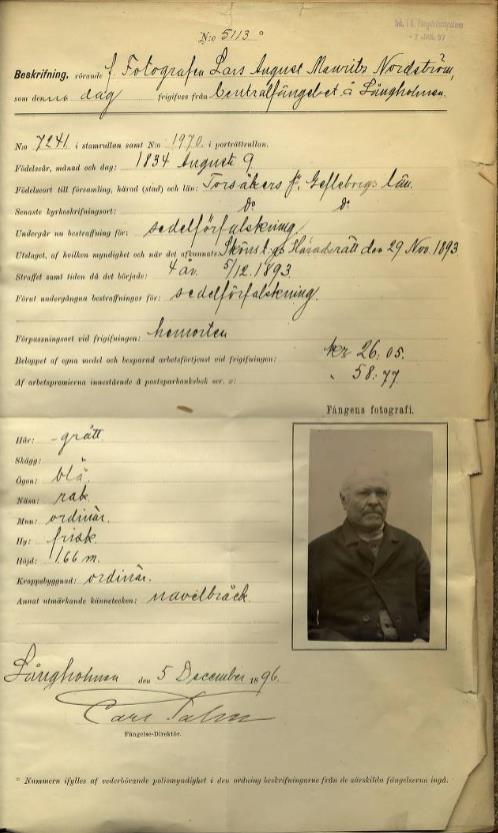 N:o 5113 *
- 7 JAN. 97
Beskrifning, rörande f. Fotografen Lars August Mauritz Nordström,
som denna dag frigifves från Centralfängelset å Långholmen.
N:o 7241 i stamrullan samt N:o 1970 i porträttrullan.
Födelseår, månad och dag: 1834 Augusti 9
Födelseort till församling, härad (stad) och län: Torsåkers f. Gefleborgs län.
Senaste kyrkoskrifningsort: D:o D:o
Undergår nu bestraffning för: sedelförfalskning
Utslaget, af hvilken myndighet och när det afkunnats: Sköns t.gs Häradsrätt den 29 Nov. 1893
Straffet samt tiden då det började: 4 år. 5/12 1893.
Förut undergångna bestraffningar för: sedelförfalskning.
Förpassningsort vid frigifningen: hemorten
Beloppet af egna medel och besparad arbetsförtjenst vid frigifningen: kr 26.05.
Af arbetspremierna innestående å postsparbanksbok ser. o: " 58:77
Fångens fotografi.
Hår: grått
Skägg: "
Ögon: blå
Näsa: rak
Mun: ordinär.
Hy: frisk
Höjd: 1.66 m.
Kroppsbyggnad: ordinär.
Annat utmärkande kännetecken: navelbråck
Långholmen den 5 December 1896.
Carl
Fängelse-Direktör.
* Nummern ifylles af vederbörande polismyndighet i den ordning beskrifningarne från de särskilda fängelserna ingå.